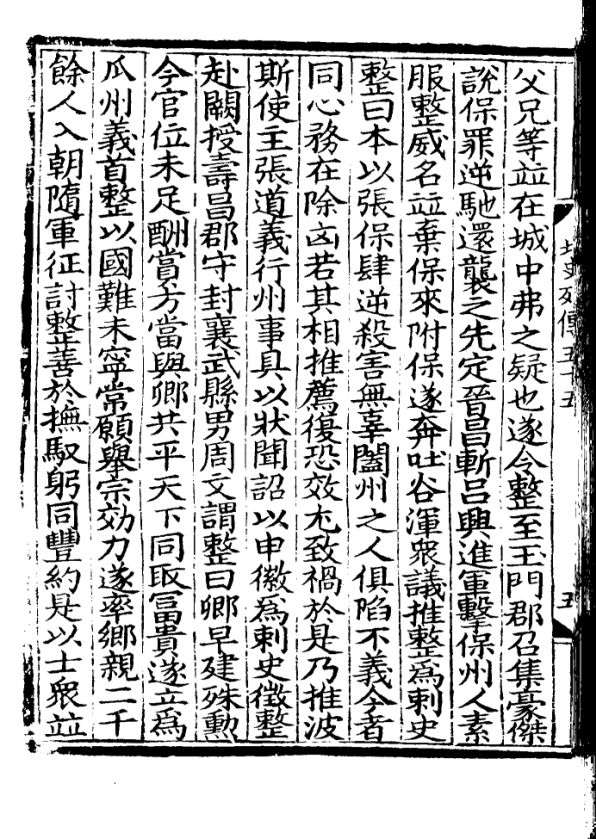 北史列傳五十五
五
父兄等竝在城中弗之疑也遂令整至玉門郡召集豪傑
說保罪逆馳還襲之先定晉昌斬呂興進軍擊保州人素
服整威名竝棄保來附保遂奔吐谷渾衆議推整爲刺史
整曰本以張保肆逆殺害無辜闔州之人俱陷不義今者
同心務在除凶若其相推薦復恐效尤致禍於是乃推波
斯使主張道義行州事具以狀聞詔以申徽爲刺史徵整
赴闕授壽昌郡守封襄武縣男周文謂整曰卿早建殊勳
今官位未足酬賞方當與卿共平天下同取冨貴遂立爲
瓜州義首整以國難未寧常願舉宗効力遂率鄉親二千
餘人入朝隨軍征討整善於撫馭躬同豐約是以士衆竝